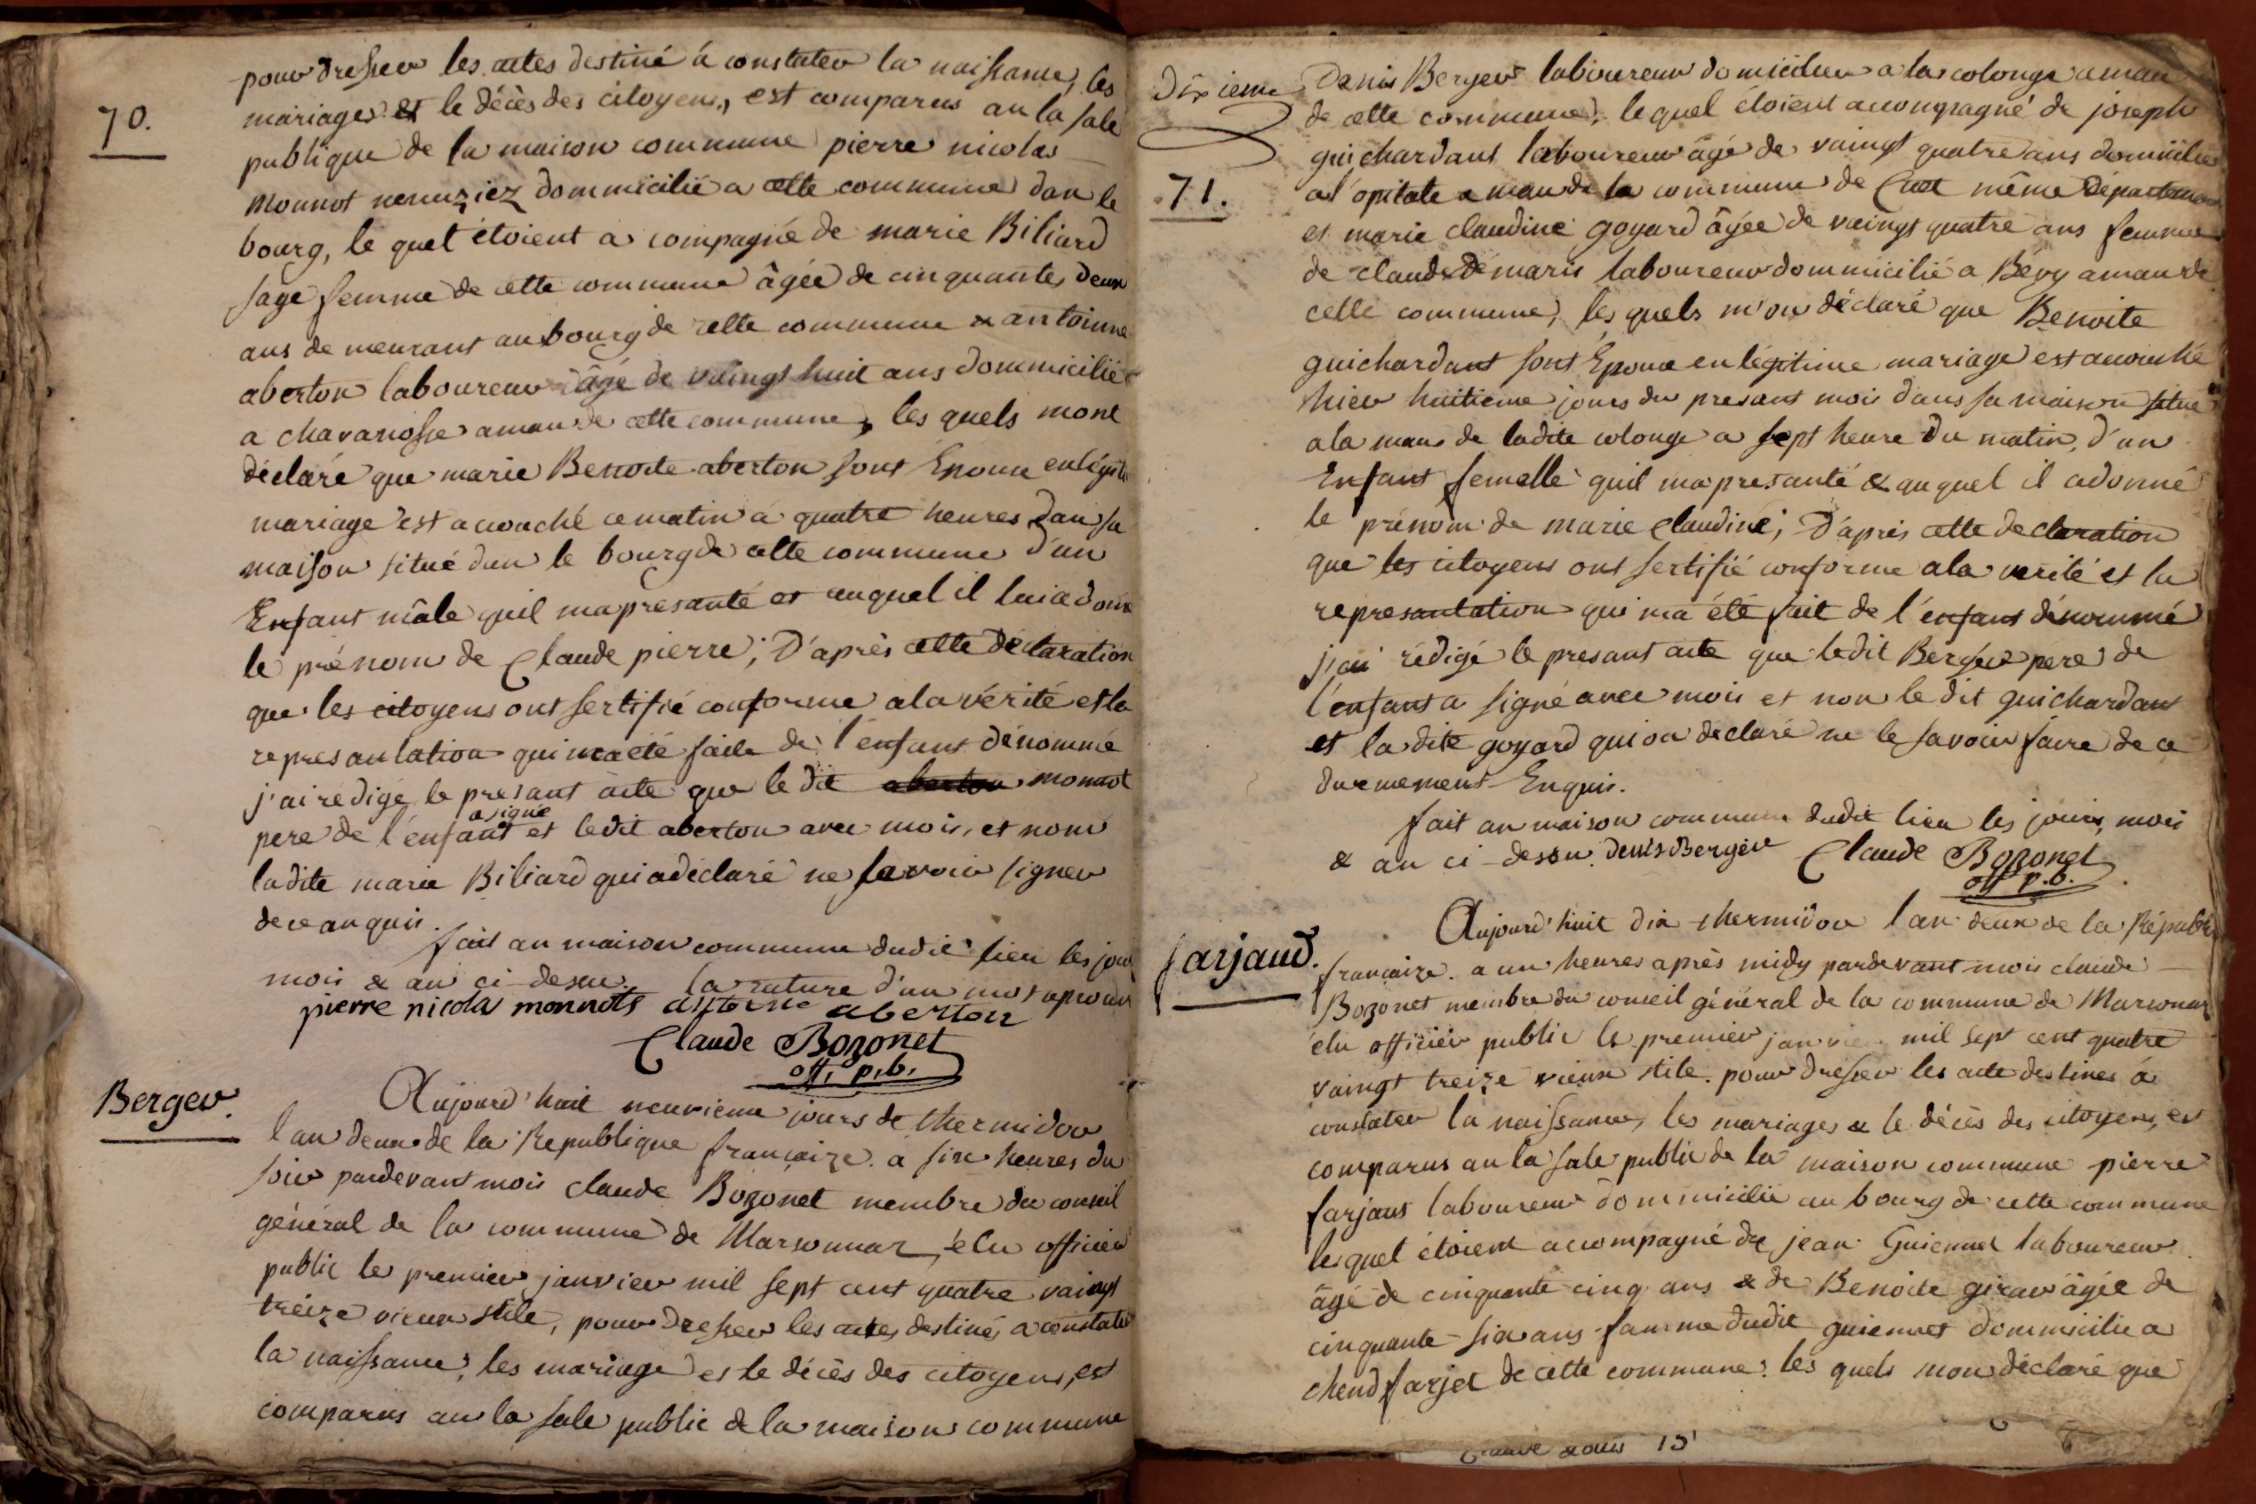 70.
pour dresser les actes destiné á constater la naissance, les
mariages et le décès des citoyens, est comparus an la sale
publique de la maison commune pierre nicolas
Monnot dommicilié a cette commune dan le
bourg, le quel étoient a compagné de marie Biliard
sage femme de cette commune âgée de cinquante, deux
ans de meurant au bourg de cette commune & antoinne
aberton laboureur âgé de vaingt huit ans dommicilié
a chavanosse aman de cette commune, les quels mont
déclaré que marie Benoite aberton sont Epouse en légiti
mariage est acouché ce matin á quatre heures dan sa
maison situé dan le bourg de cette commune d'un
Enfant mâle quil ma presanté et auquel il lui a donn
le prénom de Claude pierre; D'après cette déclaration
que les citoyens ont sertifié conforme a la vérité et la
represantation qui ma été faite de l'enfant dénommé
j'ai rédigé le presant acte que le dit aberton monnot
a signé
pere de l'enfant et ledit aberton avec mois, et nom
ladite marie Biliard qui a déclaré ne savoir signer
de ce anquis.
fait an maison commune dudit lieu les jour
mois & an ci-desu. la rature d'un mot aprouvé
pierre nicola monnots antoine aberton
Claude Bozonet
off. p.b.
Berger.
Aujourd'huit neuvieme jours de thermidor
l'an deux de la Republique françaize. á six heures du
soir pardevant mois Claude Bozonet membre du conseil
général de la commune de Marsonnaz, élu officier
public le premier janvier mil sept cent quatre vaingt
treize vieux stile, pour dresser les actes destinés a constater
la naissance, les mariage et le décès des citoyens, est
comparus an la sale public de la maison commune
Dixieme
71.
Denis Berger laboureur domicilier a la colonge aman
de cette commune, le quel étoient accompagné de joseph
guichardant laboureur âgé de vaingt quatre ans domicilié
a l'opitale aman de la commune de Cuet même département
et marie claudine goyard âgée de vaingt quatre ans femme
de claude Démaris laboureur dommicilié a Bévy aman de
cette commune, les quels m'on déclaré que Benoite
guichardant sont Epouse en légitime mariage est acouché
hier huitieme jours du presant mois dans sa maison situé
a la man de ladite colonge a sept heure du matin, d'un
Enfant femelle quil ma presanté & auquel il a donné
le prénom de marie Claudine; D'après cette declaration
que les citoyens ont sertifié conforme a la verité et la
represantation qui ma été fait de l'enfant dénommé
j'ai rédigé le presant acte que ledit Berger pere de
l'enfant a signé avec mois et non le dit guichardant
et la dite goyard qui on déclaré ne le savoir faire de ce
durmement Enquis.
fait an maison commune dudit lieu les jours, mois
& an ci-desu. denis Berger Claude Bozonet
off p.b.
farjaud.
Aujourd'huit dix thermidor l'an deux de la Républi
françaize. a un heures après midy pardevant mois claude
Bozonet membre du conseil général de la commune de Marsonnaz
élu officier public le premier janvier mil sept cent quatre
vaingt treize vieux stile. pour dresser les acte destinés á
constater la naissance, les mariages & le décès des citoyens, est
comparus an la sale public de la maison commune pierre
farjaus laboureur dommicilié au bourg de cette commune
le quel étoient accompagné de jean Guiennet laboureur
âgé de cinquante cinq ans & de Benoite girar âgée de
cinquante-six ans famme dudit guiennet dommicilié a
chend farjet de cette commune. les quels mon déclaré que